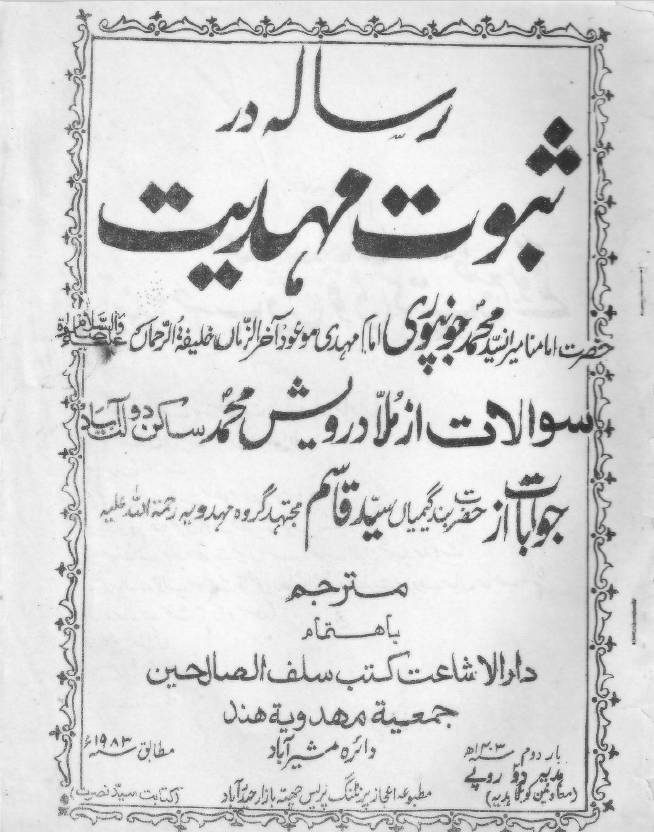 رسالہ در
ثبوت مہدیت
حضرت امامنا میراں سید محمد جونپوری امام مہدی موعود آخر الزماں خلیفۃ الرحمان علیہ الصلوٰۃ والسلام
سوالات از ملّا درویش محمد ساکن دولت آباد
جوابات از حضرت بندگیمیاں سید قاسم مجتہد گروہ مہدویہ رحمۃ اللہ علیہ
مترجم
باہتمام
دار الاشاعت کتب سلف الصالحین
جمعیۃ مہدویۃ ہند
دائرہ مشیر آباد
بار دوم ۱۴۰۳ھ
مطابق ۱۹۸۳ء
ہدیہ دو روپے
(معاونین کو بلا ہدیہ)
مطبوعہ اعجاز پرنٹنگ پریس چھتہ بازار حیدرآباد
(کتابت سید نصرت)